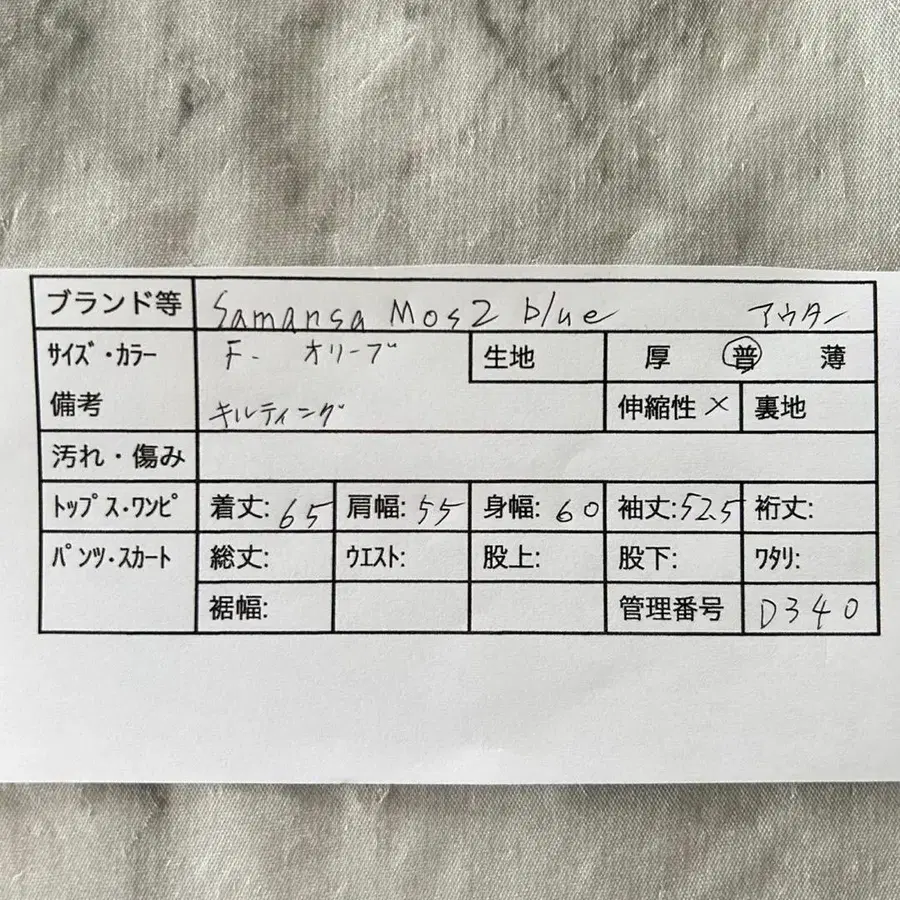 ブランド等 Samansa Mos2 blue アウター
サイズ・カラー F. オリーブ 生地 厚 普 薄
備考 キルティング 伸縮性 × 裏地
汚れ・傷み
トップス・ワンピ 着丈: 65 肩幅: 55 身幅: 60 袖丈: 52.5 裄丈:
パンツ・スカート 総丈: ウエスト: 股上: 股下: ワタリ:
裾幅: 管理番号 D340